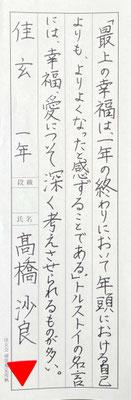 「最上の幸福は、一年の終わりにおいて年頭における自己
よりも、よりよくなったと感ずることである」、トルストイの名言
には、幸福、愛について深く考えさせられるものが多い。
佳玄 一年
段級
氏名
髙橋沙良